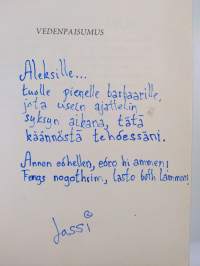 VEDENPAISUMUS
Aleksille...
tuolle pienelle barbaarille,
jota usein ajattelin
syksyn aikana, tätä
käännöstä tehdessäni.
Annon edhellen, edro hi ammen!
Fennas nogothrim, lasto beth lammen!
Jassi